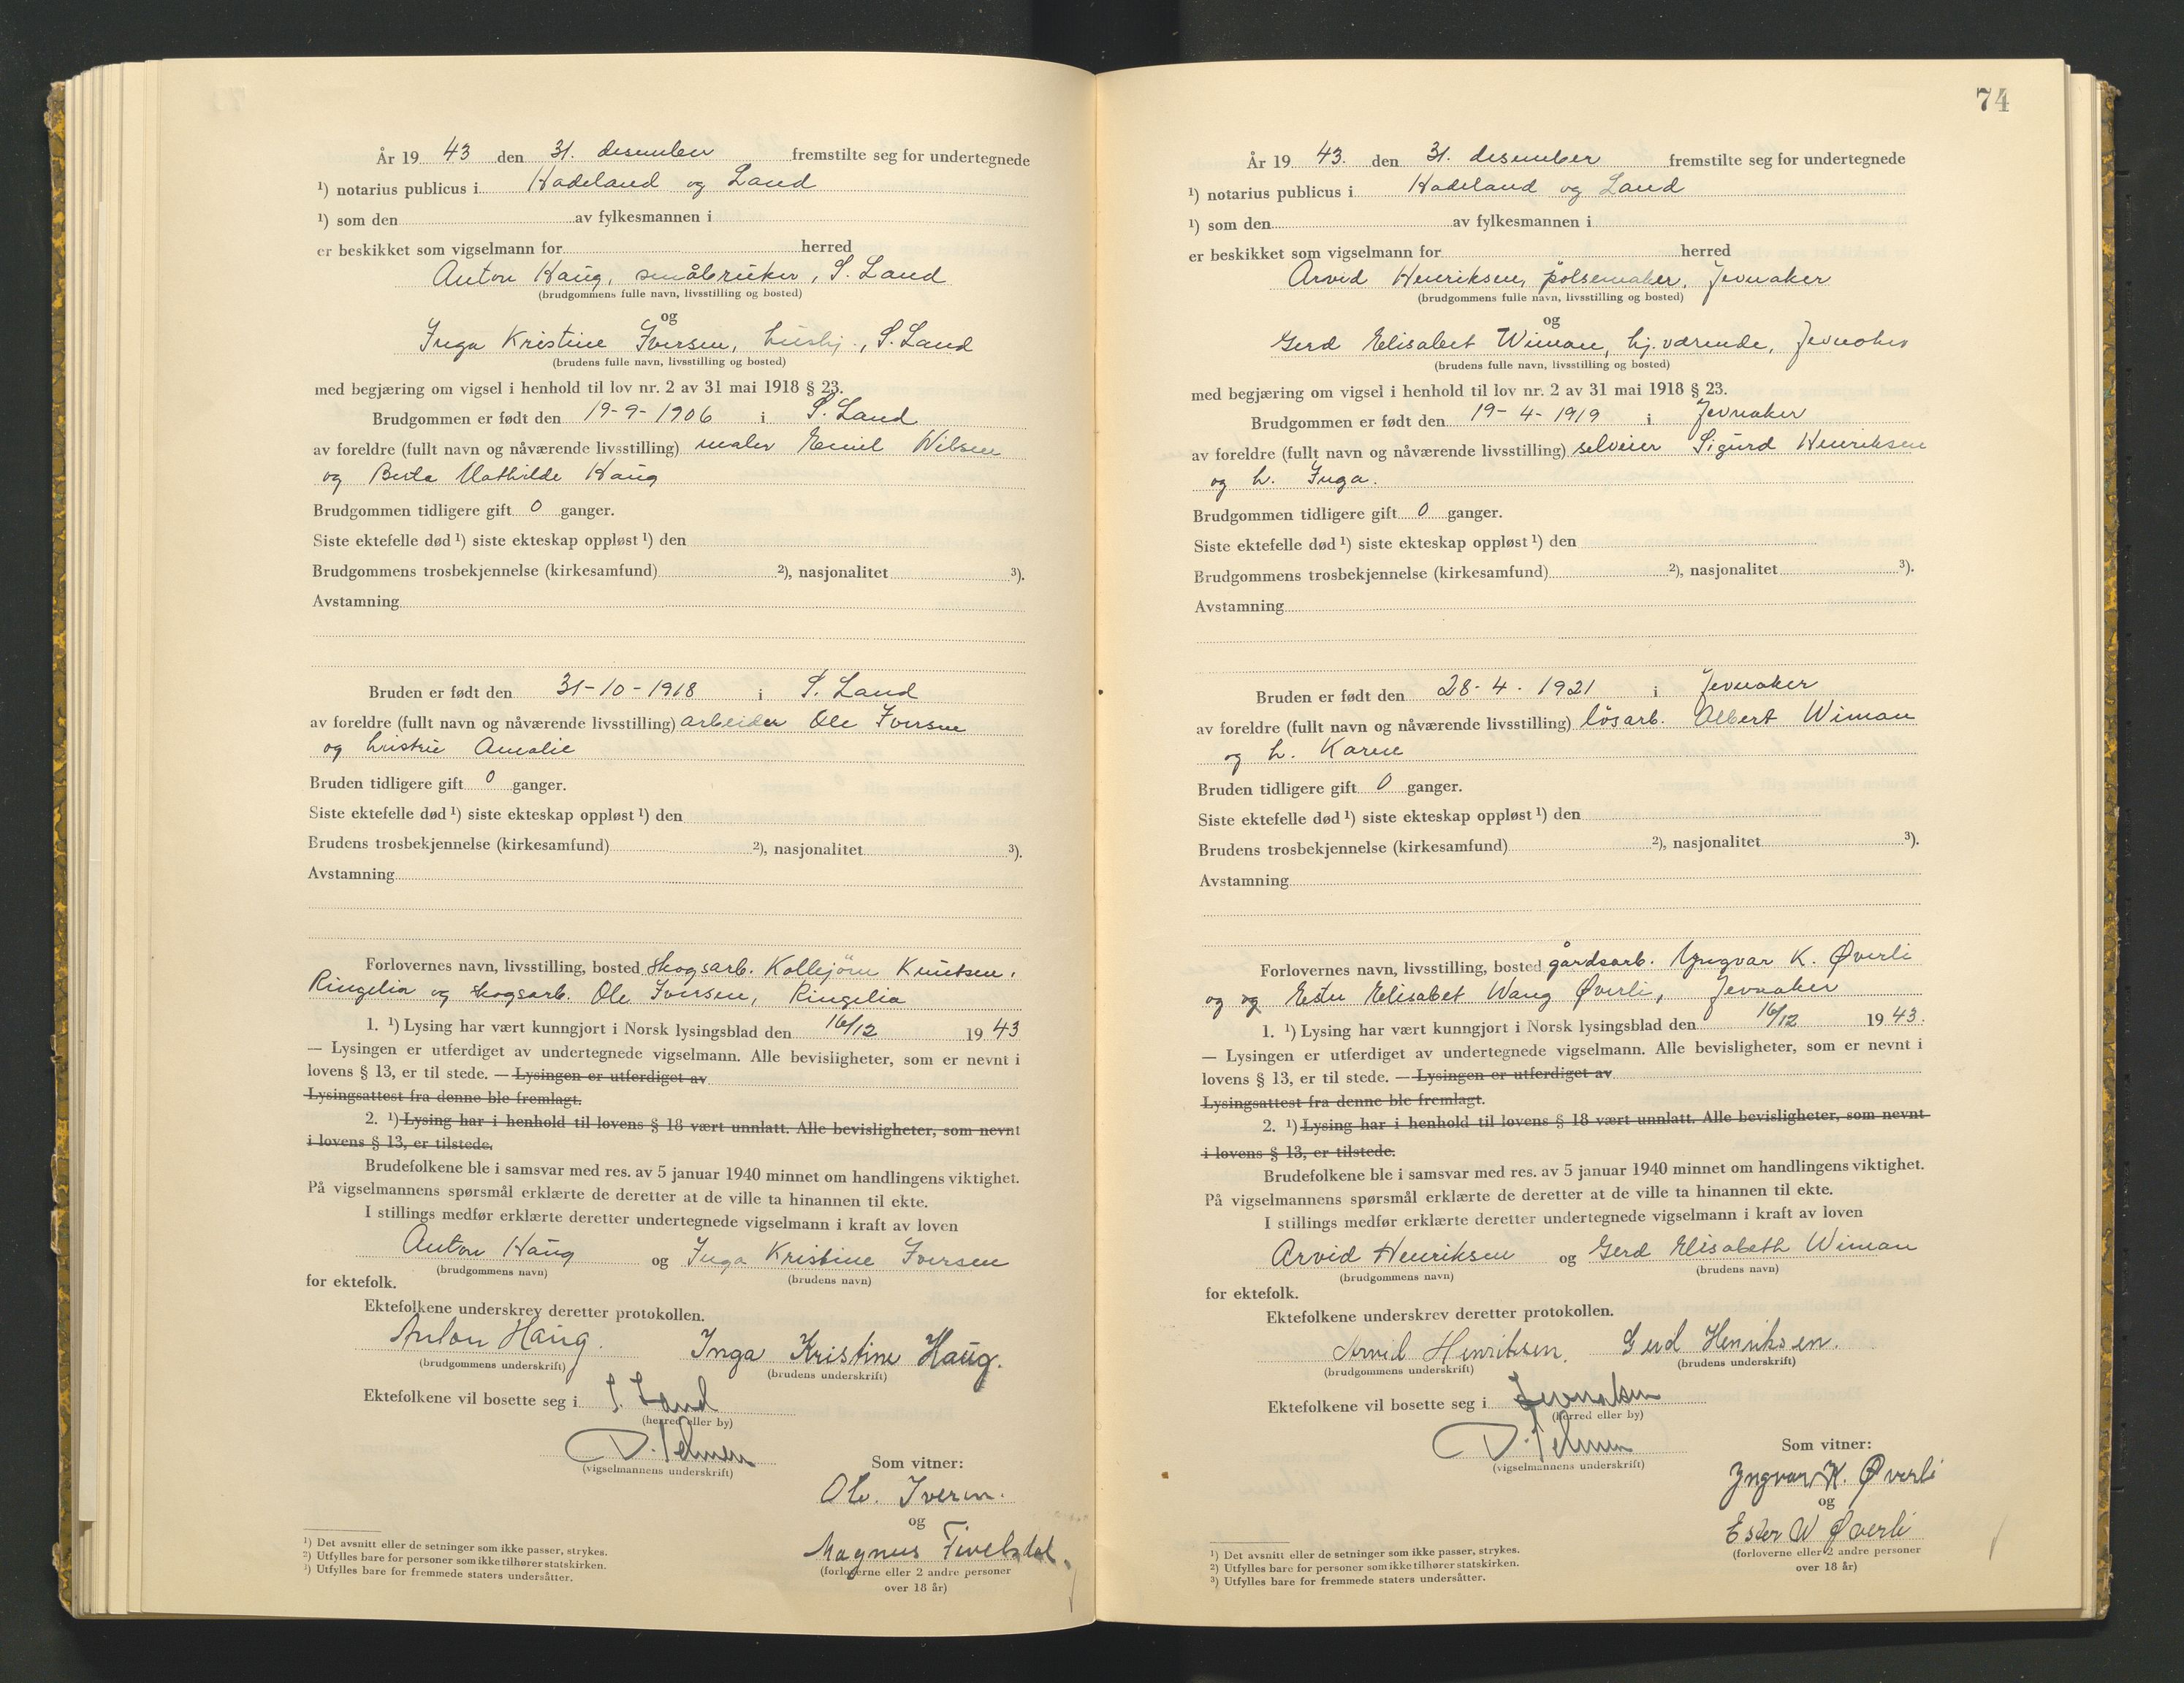 År 19 43 den 31. desember fremstilte seg for undertegnede
¹) notarius publicus i Hadeland og Land
¹) som den av fylkesmannen i
er beskikket som vigselmann for herred
Anton Haug, småbruker, S. Land
(brudgommens fulle navn, livsstilling og bosted)
og
Inga Kristine Iversen, hushj., S. Land
(brudens fulle navn, livsstilling og bosted)
med begjæring om vigsel i henhold til lov nr. 2 av 31 mai 1918 § 23.
Brudgommen er født den 19-9-1906 i S. Land
av foreldre (fullt navn og nåværende livsstilling) maler Emil Nilsen
og Berte Mathilde Haug
Brudgommen tidligere gift 0 ganger.
Siste ektefelle død ¹) siste ekteskap oppløst ¹) den
Brudgommens trosbekjennelse (kirkesamfund) ²), nasjonalitet ³).
Avstamning
Bruden er født den 31-10-1918 i S. Land
av foreldre (fullt navn og nåværende livsstilling) arbeider Ole Iversen
og hustru Amalie
Bruden tidligere gift 0 ganger.
Siste ektefelle død ¹) siste ekteskap oppløst ¹) den
Brudens trosbekjennelse (kirkesamfund) ²), nasjonalitet ³).
Avstamning
Forlovernes navn, livsstilling, bosted skogsarb. Kolbjørn Knutsen,
Ringelia og skogsarb. Ole Iversen, Ringelia
1. ¹) Lysing har vært kunngjort i Norsk lysingsblad den 16/12 19 43
— Lysingen er utferdiget av undertegnede vigselmann. Alle bevisligheter, som er nevnt i
lovens § 13, er til stede. — Lysingen er utferdiget av
Lysingsattest fra denne ble fremlagt.
2. ¹) Lysing har i henhold til lovens § 18 vært unnlatt. Alle bevisligheter, som nevnt
i lovens § 13, er tilstede.
Brudefolkene ble i samsvar med res. av 5 januar 1940 minnet om handlingens viktighet.
På vigselmannens spørsmål erklærte de deretter at de ville ta hinannen til ekte.
I stillings medfør erklærte deretter undertegnede vigselmann i kraft av loven
Anton Haug og Inga Kristine Iversen
(brudgommens navn) (brudens navn)
for ektefolk.
Ektefolkene underskrev deretter protokollen.
Anton Haug. Inga Kristine Haug.
(brudgommens underskrift) (brudens underskrift)
Ektefolkene vil bosette seg i S. Land
(herred eller by)
(vigselmannens underskrift)
Som vitner:
Ole Iversen.
og
Magnus Tivelsdal.
(forloverne eller 2 andre personer
over 18 år)
¹) Det avsnitt eller de setninger som ikke passer, strykes.
²) Utfylles bare for personer som ikke tilhører statskirken.
³) Utfylles bare for fremmede staters undersåtter.
74
År 19 43. den 31. desember fremstilte seg for undertegnede
¹) notarius publicus i Hadeland og Land
¹) som den av fylkesmannen i
er beskikket som vigselmann for herred
Arvid Henriksen, pølsemaker, Jevnaker
(brudgommens fulle navn, livsstilling og bosted)
og
Gerd Elisabet Wiman, hj.værende, Jevnaker
(brudens fulle navn, livsstilling og bosted)
med begjæring om vigsel i henhold til lov nr. 2 av 31 mai 1918 § 23.
Brudgommen er født den 19-4-1919 i Jevnaker
av foreldre (fullt navn og nåværende livsstilling) selveier Sigurd Henriksen
og h. Inga.
Brudgommen tidligere gift 0 ganger.
Siste ektefelle død ¹) siste ekteskap oppløst ¹) den
Brudgommens trosbekjennelse (kirkesamfund) ²), nasjonalitet ³).
Avstamning
Bruden er født den 28-4-1921 i Jevnaker
av foreldre (fullt navn og nåværende livsstilling) løsarb. Albert Wiman
og h. Karen
Bruden tidligere gift 0 ganger.
Siste ektefelle død ¹) siste ekteskap oppløst ¹) den
Brudens trosbekjennelse (kirkesamfund) ²), nasjonalitet ³).
Avstamning
Forlovernes navn, livsstilling, bosted gårdsarb. Yngvar K. Øverli
og og Ester Elisabet Wang Øverli, Jevnaker
1. ¹) Lysing har vært kunngjort i Norsk lysingsblad den 16/12 19 43.
— Lysingen er utferdiget av undertegnede vigselmann. Alle bevisligheter, som er nevnt i
lovens § 13, er til stede. — Lysingen er utferdiget av
Lysingsattest fra denne ble fremlagt.
2. ¹) Lysing har i henhold til lovens § 18 vært unnlatt. Alle bevisligheter, som nevnt
i lovens § 13, er tilstede.
Brudefolkene ble i samsvar med res. av 5 januar 1940 minnet om handlingens viktighet.
På vigselmannens spørsmål erklærte de deretter at de ville ta hinannen til ekte.
I stillings medfør erklærte deretter undertegnede vigselmann i kraft av loven
Arvid Henriksen og Gerd Elisabeth Wiman
(brudgommens navn) (brudens navn)
for ektefolk.
Ektefolkene underskrev deretter protokollen.
Arvid Henriksen. Gerd Henriksen.
(brudgommens underskrift) (brudens underskrift)
Ektefolkene vil bosette seg i Jevnaker
(herred eller by)
(vigselmannens underskrift)
Som vitner:
Yngvar K. Øverli
og
Ester W Øverli
(forloverne eller 2 andre personer
over 18 år)
¹) Det avsnitt eller de setninger som ikke passer, strykes.
²) Utfylles bare for personer som ikke tilhører statskirken.
³) Utfylles bare for fremmede staters undersåtter.